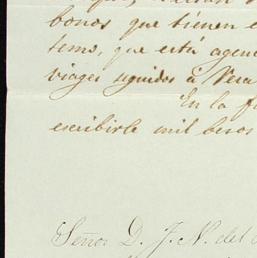 bonos que tienen
temo, que está agen
viages seguidos á Vera
En la
escribirle mil besos
Señor D. J. N. del